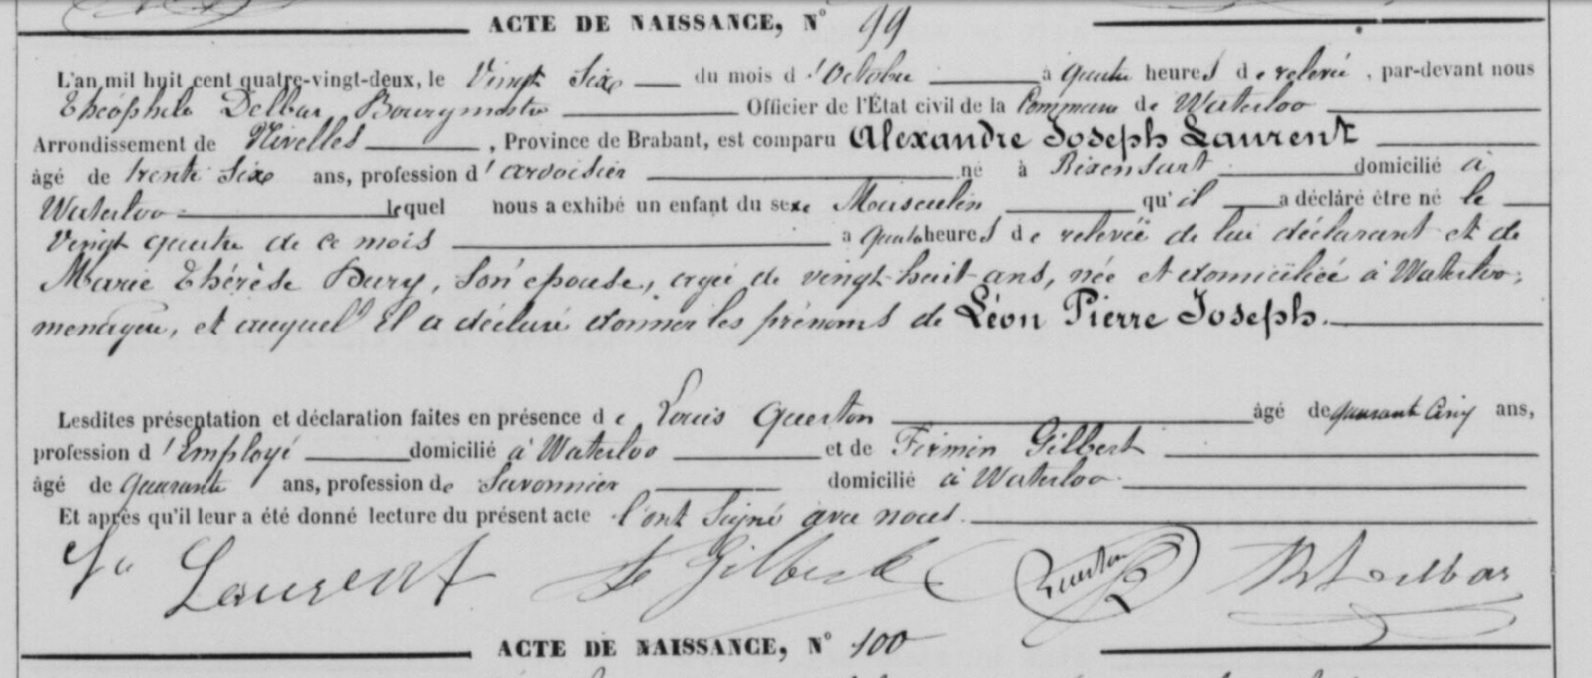 ACTE DE NAISSANCE, N° 99
L'an mil huit cent quatre-vingt-deux, le Vingt Six du mois d'Octobre à quatre heures de relevée, par-devant nous
Théophile Delbar Bourgmestre Officier de l'État civil de la Commune de Waterloo
Arrondissement de Nivelles, Province de Brabant, est comparu Alexandre Joseph Laurent
âgé de trente Six ans, profession d'ardoisier né à Rixensart domicilié à
Waterloo lequel nous a exhibé un enfant du sexe Masculin qu'il a déclaré être né le
Vingt quatre de ce mois a quatre heures de relevée de lui déclarant et de
Marie Thérèse Dury, Son épouse, agée de vingt-huit ans, née et domiciliée à Waterloo,
menagere, et auquel il a déclaré donner les prénoms de Léon Pierre Joseph.
Lesdites présentation et déclaration faites en présence de Louis Querton âgé de quarante Cinq ans,
profession d'Employé domicilié à Waterloo et de Firmin Gilbert
âgé de Quarante ans, profession de Savonnier domicilié à Waterloo
Et après qu'il leur a été donné lecture du présent acte l'ont Signé avec nous.
Laurent F Gilbert Querton Th Delbar
ACTE DE NAISSANCE, N° 100